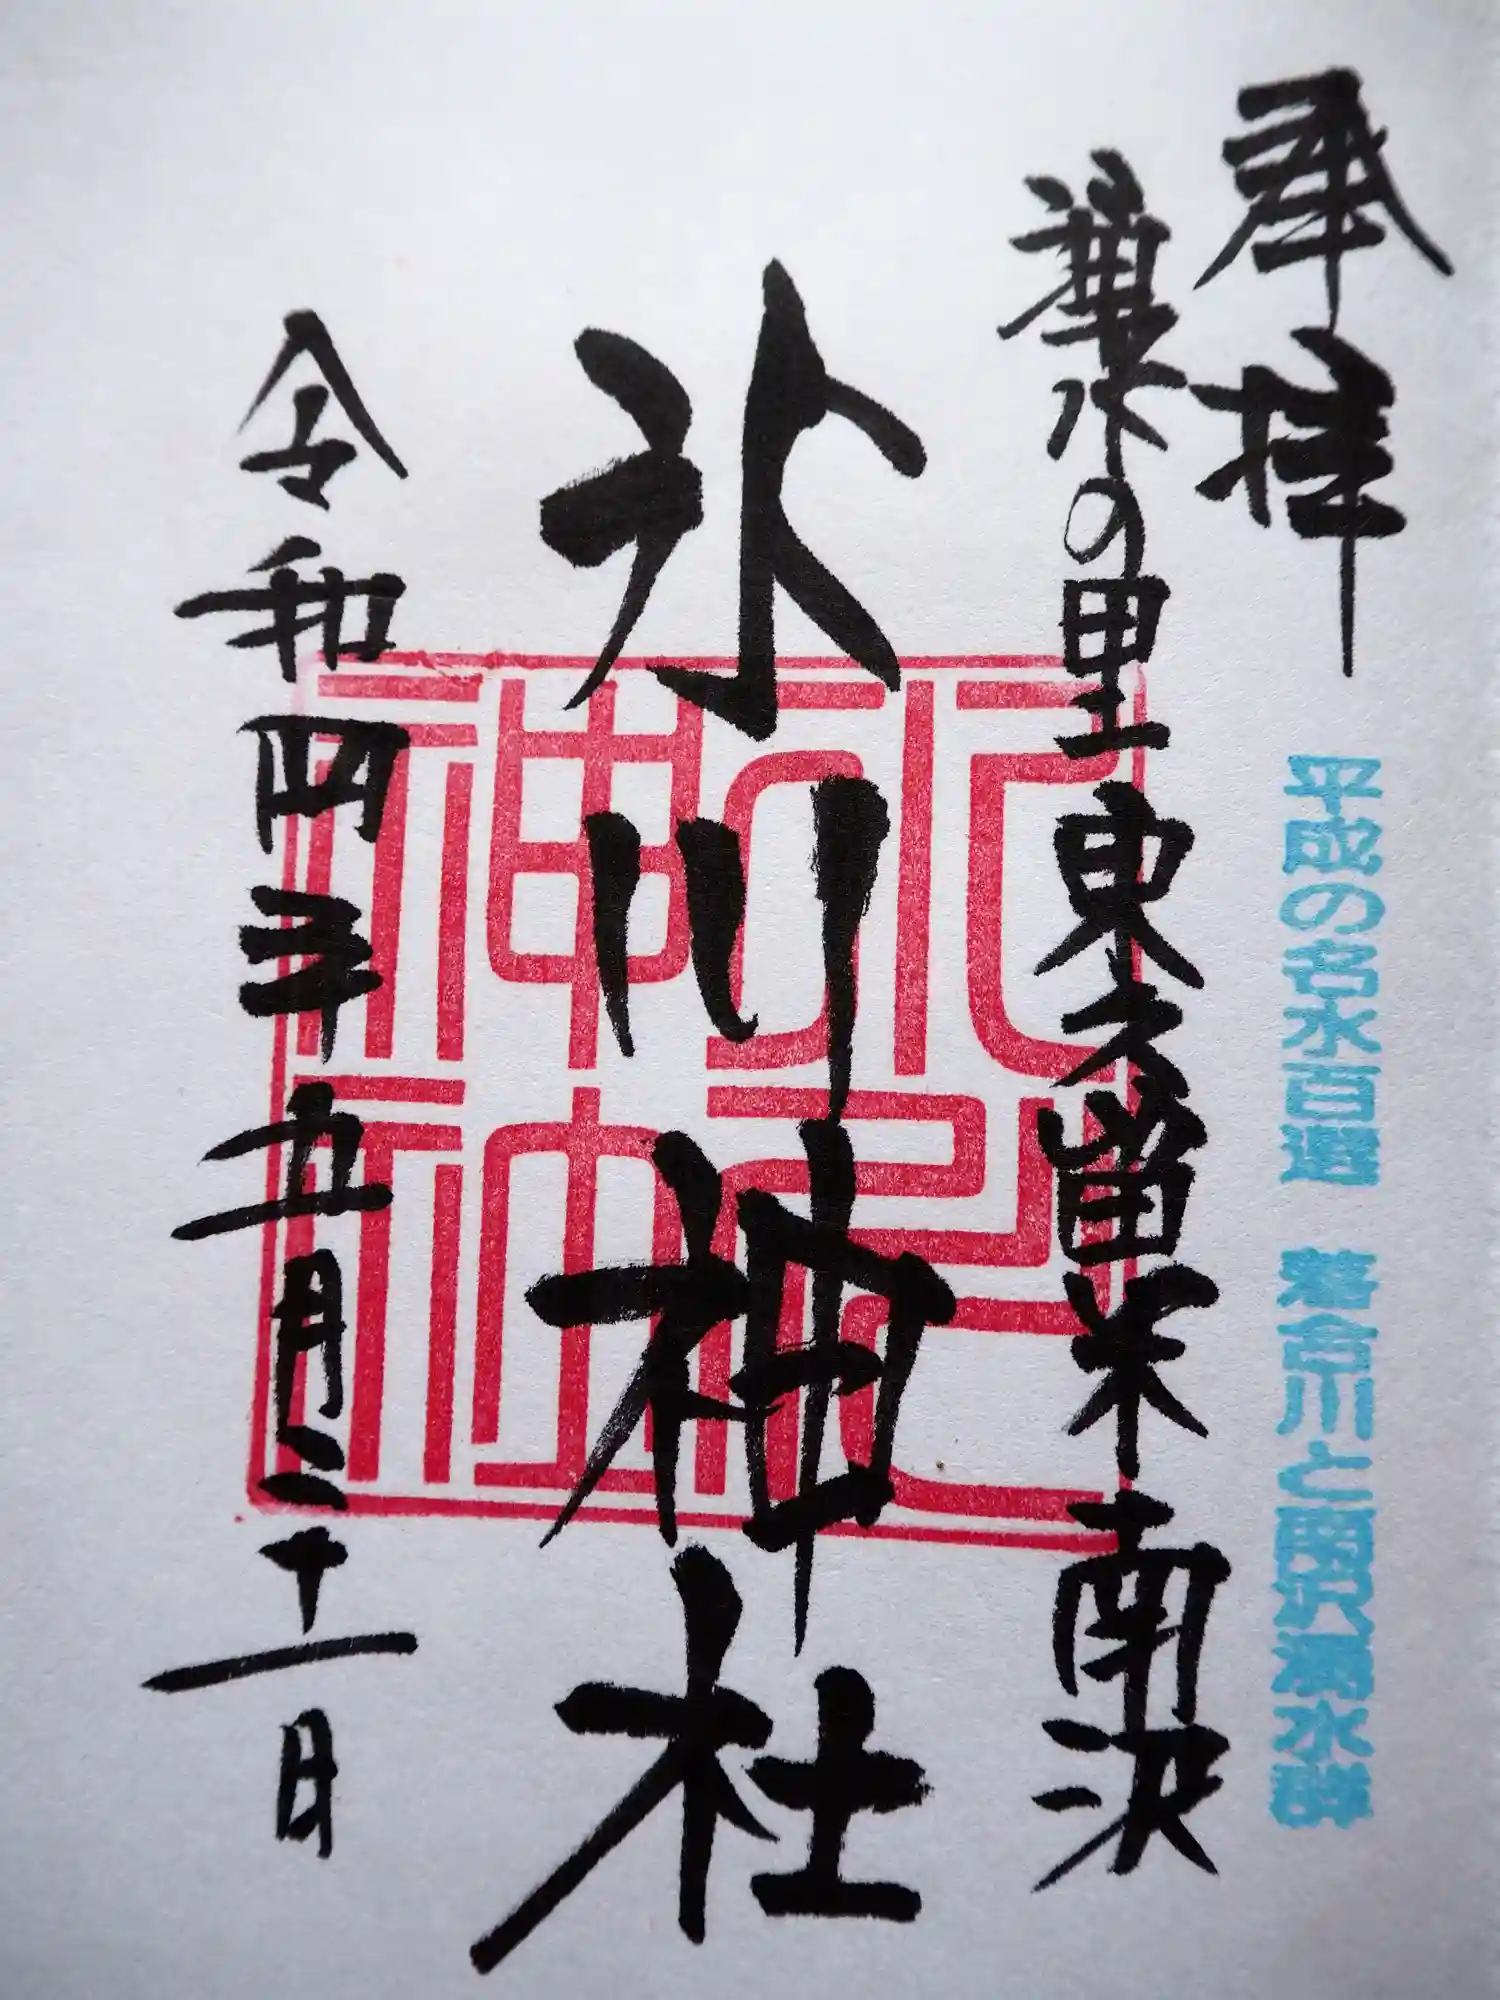 奉拝
平成の名水百選 落合川と南沢湧水群
湧水の里 東久留米 南沢
氷川神社
令和四年五月二十一日